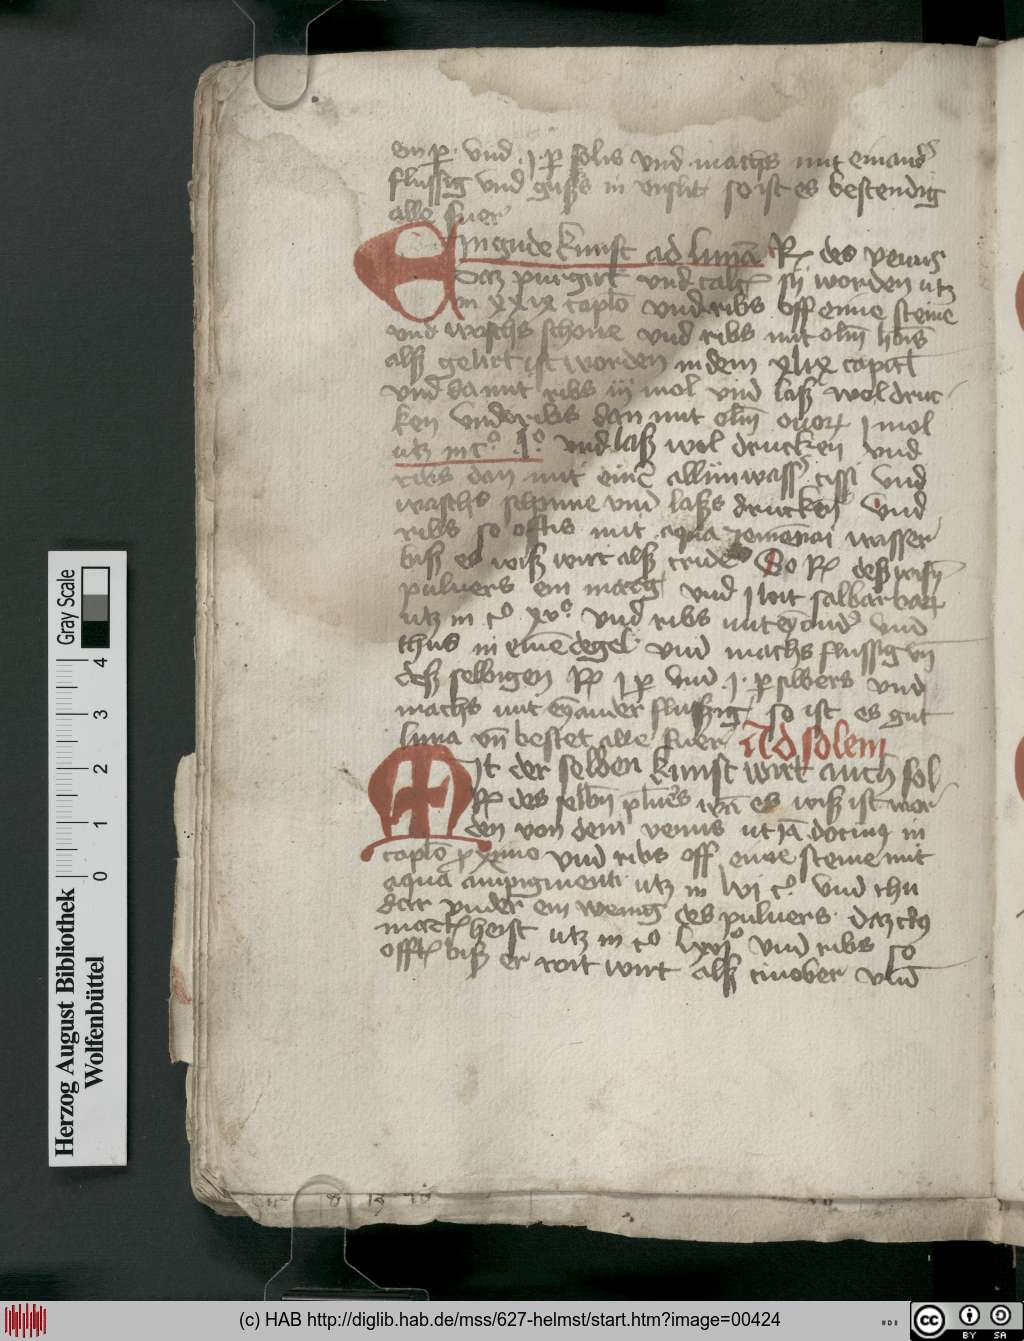 ein p. vnd .j. p solis vnd machs mit einand
flussig vnd guss in vnslit so ist es bestendig
alle fuer
Ein gude kunst ad lunā R des venus
daz purgirt vnd calc sy worden utz
in xxix caplo vnd ribs vff eime steine
vnd waschs schone vnd ribs mit olm
alß gelirt ist worden in dem xlix capitl
vnd damit ribs iij mol vnd laß wol druc
ken vnd ribs dan mit olm ouor j mol
utz in c° l° vnd laß wol drucken vnd
ribs dan mit allun wasser vnd
waschs schone vnd laßs drucken vnd
ribs so offt mit aqua wasser
biß es wiß wirt alß cride So R deß
puluers ein marg vnd j loit
utz in c° xv° vnd ribs mit eynand vnd
thus in eime degel vnd machs flussig vn
deß selbigen R j p vnd .j. p silbers vnd
machs mit eynander flußig so ist es gut
luna vn bestet alle fuer Ad solem
Mit der selben kunst wirt auch sol
R des selbn pluers wan es wiß ist wor
den von dem venus ut ia docui in
caplo vnd ribs vff eime steine mit
aqua auripigmenti utz in c° vnd thu
dar vnder ein wenig des puluers daz
heist utz in c° lxxj° vnd ribs so
offt biß er roit wirt alß cinober vnd
Herzog August Bibliothek
Wolfenbüttel
0 1 2 3 4
Gray Scale
(c) HAB http://diglib.hab.de/mss/627-helmst/start.htm?image=00424
cc BY SA